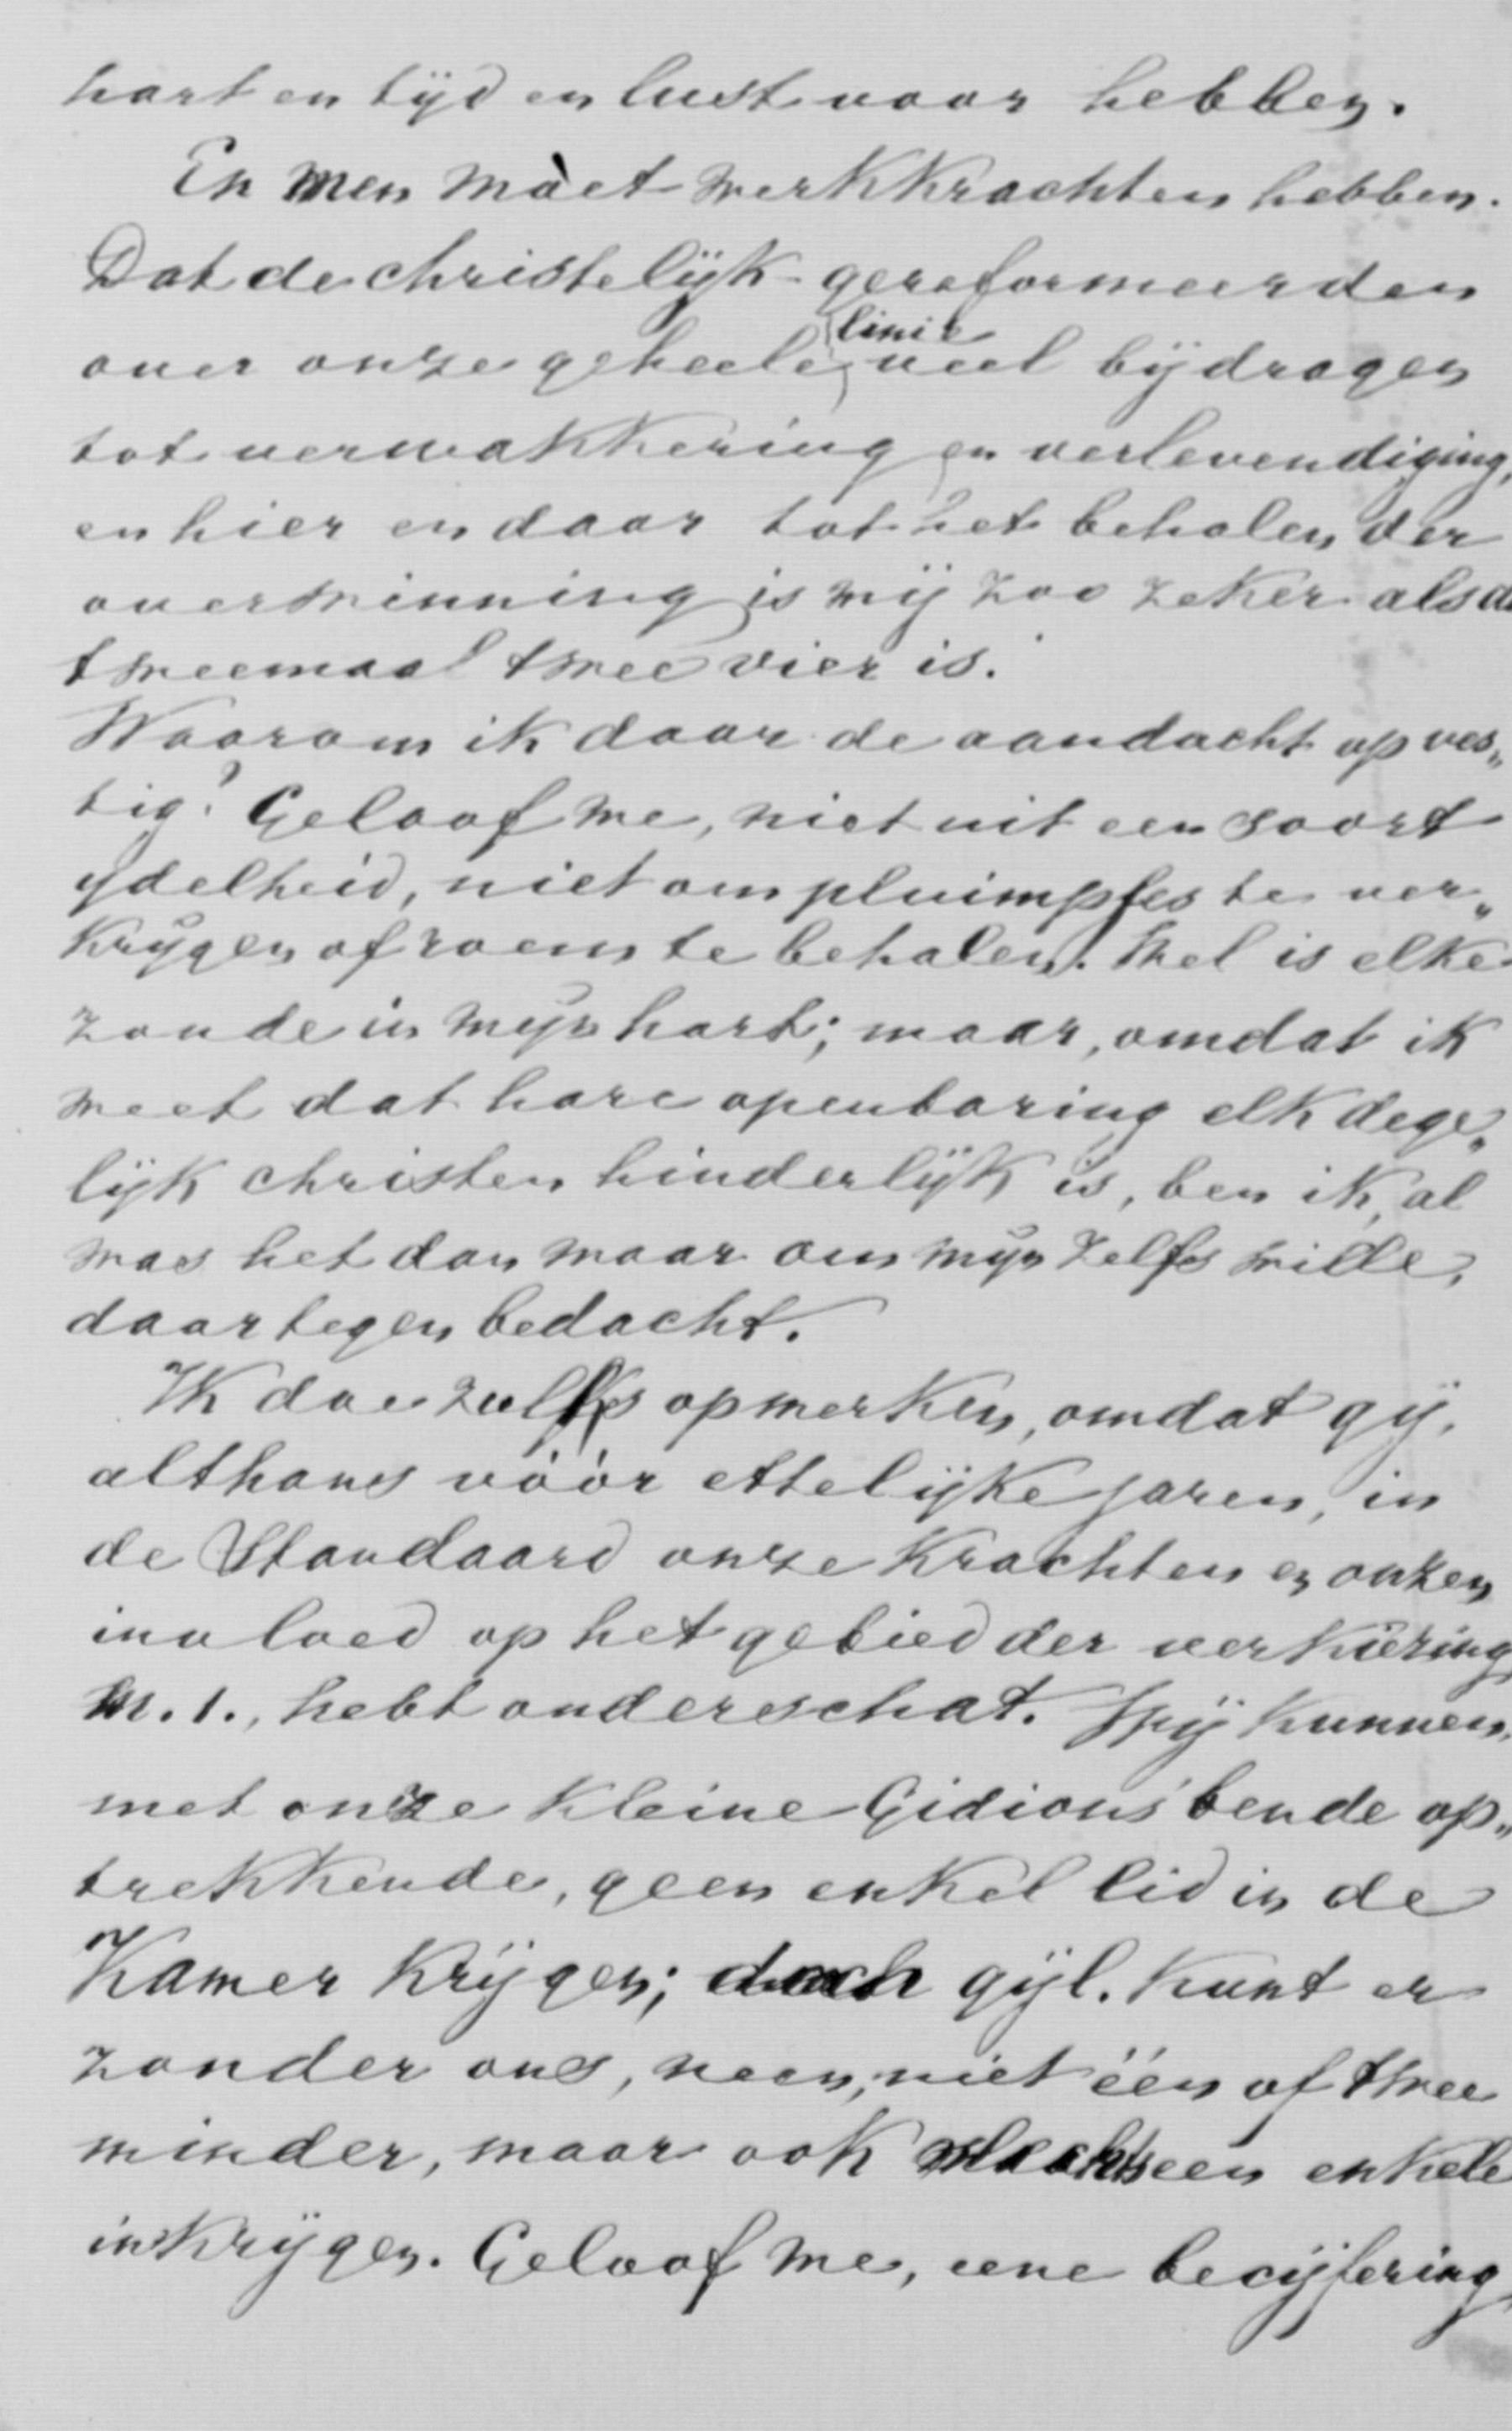 hart en tijd en lust voor hebben.
En men mòet werkkrachten hebben.
Dat de christelijk-gereformeerden
over onze geheele linie veel bijdragen
tot verwakkering en verlevendiging,
en hier en daar tot het behalen der
overwinning is mij zoo zeker als d
tweemaal twee vier is.
Waarom ik daar de aandacht op ves„
tig? Geloof me, niet uit een soort
ydelheid, niet om pluimpjes te ver„
krijgen of roem te behalen. Wel is elke
zonde in mijn hart; maar, omdat ik
weet dat hare openbaring elk dege„
lijk christen hinderlijk is, ben ik, al
was het dan maar om mijn zelfs wille,
daartegen bedacht.
Ik doe zulks opmerken, omdat gij,
althans vóór ettelijke jaren, in
de Standaard onze krachten en onzen
invloed op het gebied der verkiezing
m.i., hebt onderschat. Wij kunnen,
met onze kleine Gidions' bende op„
trekkende, geen enkel lid in de
Kamer krijgen; doch gijl. kunt er
zonder ons, neen, niet één of twee
minder, maar ook slechts een enkele
in krijgen. Geloof me, eene becijfering